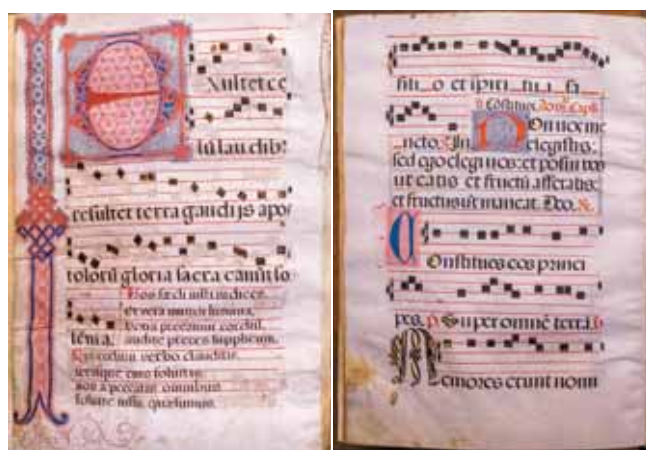 Exultet ce
lū laudib:
resultet terra gaudijs apo
stolorū gloria sacra canūt so
lēnia. Vos secli iusti iudices,
et vera mundi lumina,
votis precamur cordiū,
audite preces supplicum.
Qui celum verbo clauditis,
serasque eius solvitis,
nos a peccatis omnibus
solvite iussu, quesumus.
fili o et spiri tu i sa
Cōstitues
Non vos me
ncto. In. elegistis:
sed ego elegi vos: et posui vos
ut eatis et fructū afferatis:
et fructus vr maneat. Deo. R.
Constitues eos princi
pes. p. Super omnē terrā.
Memores erunt nomi